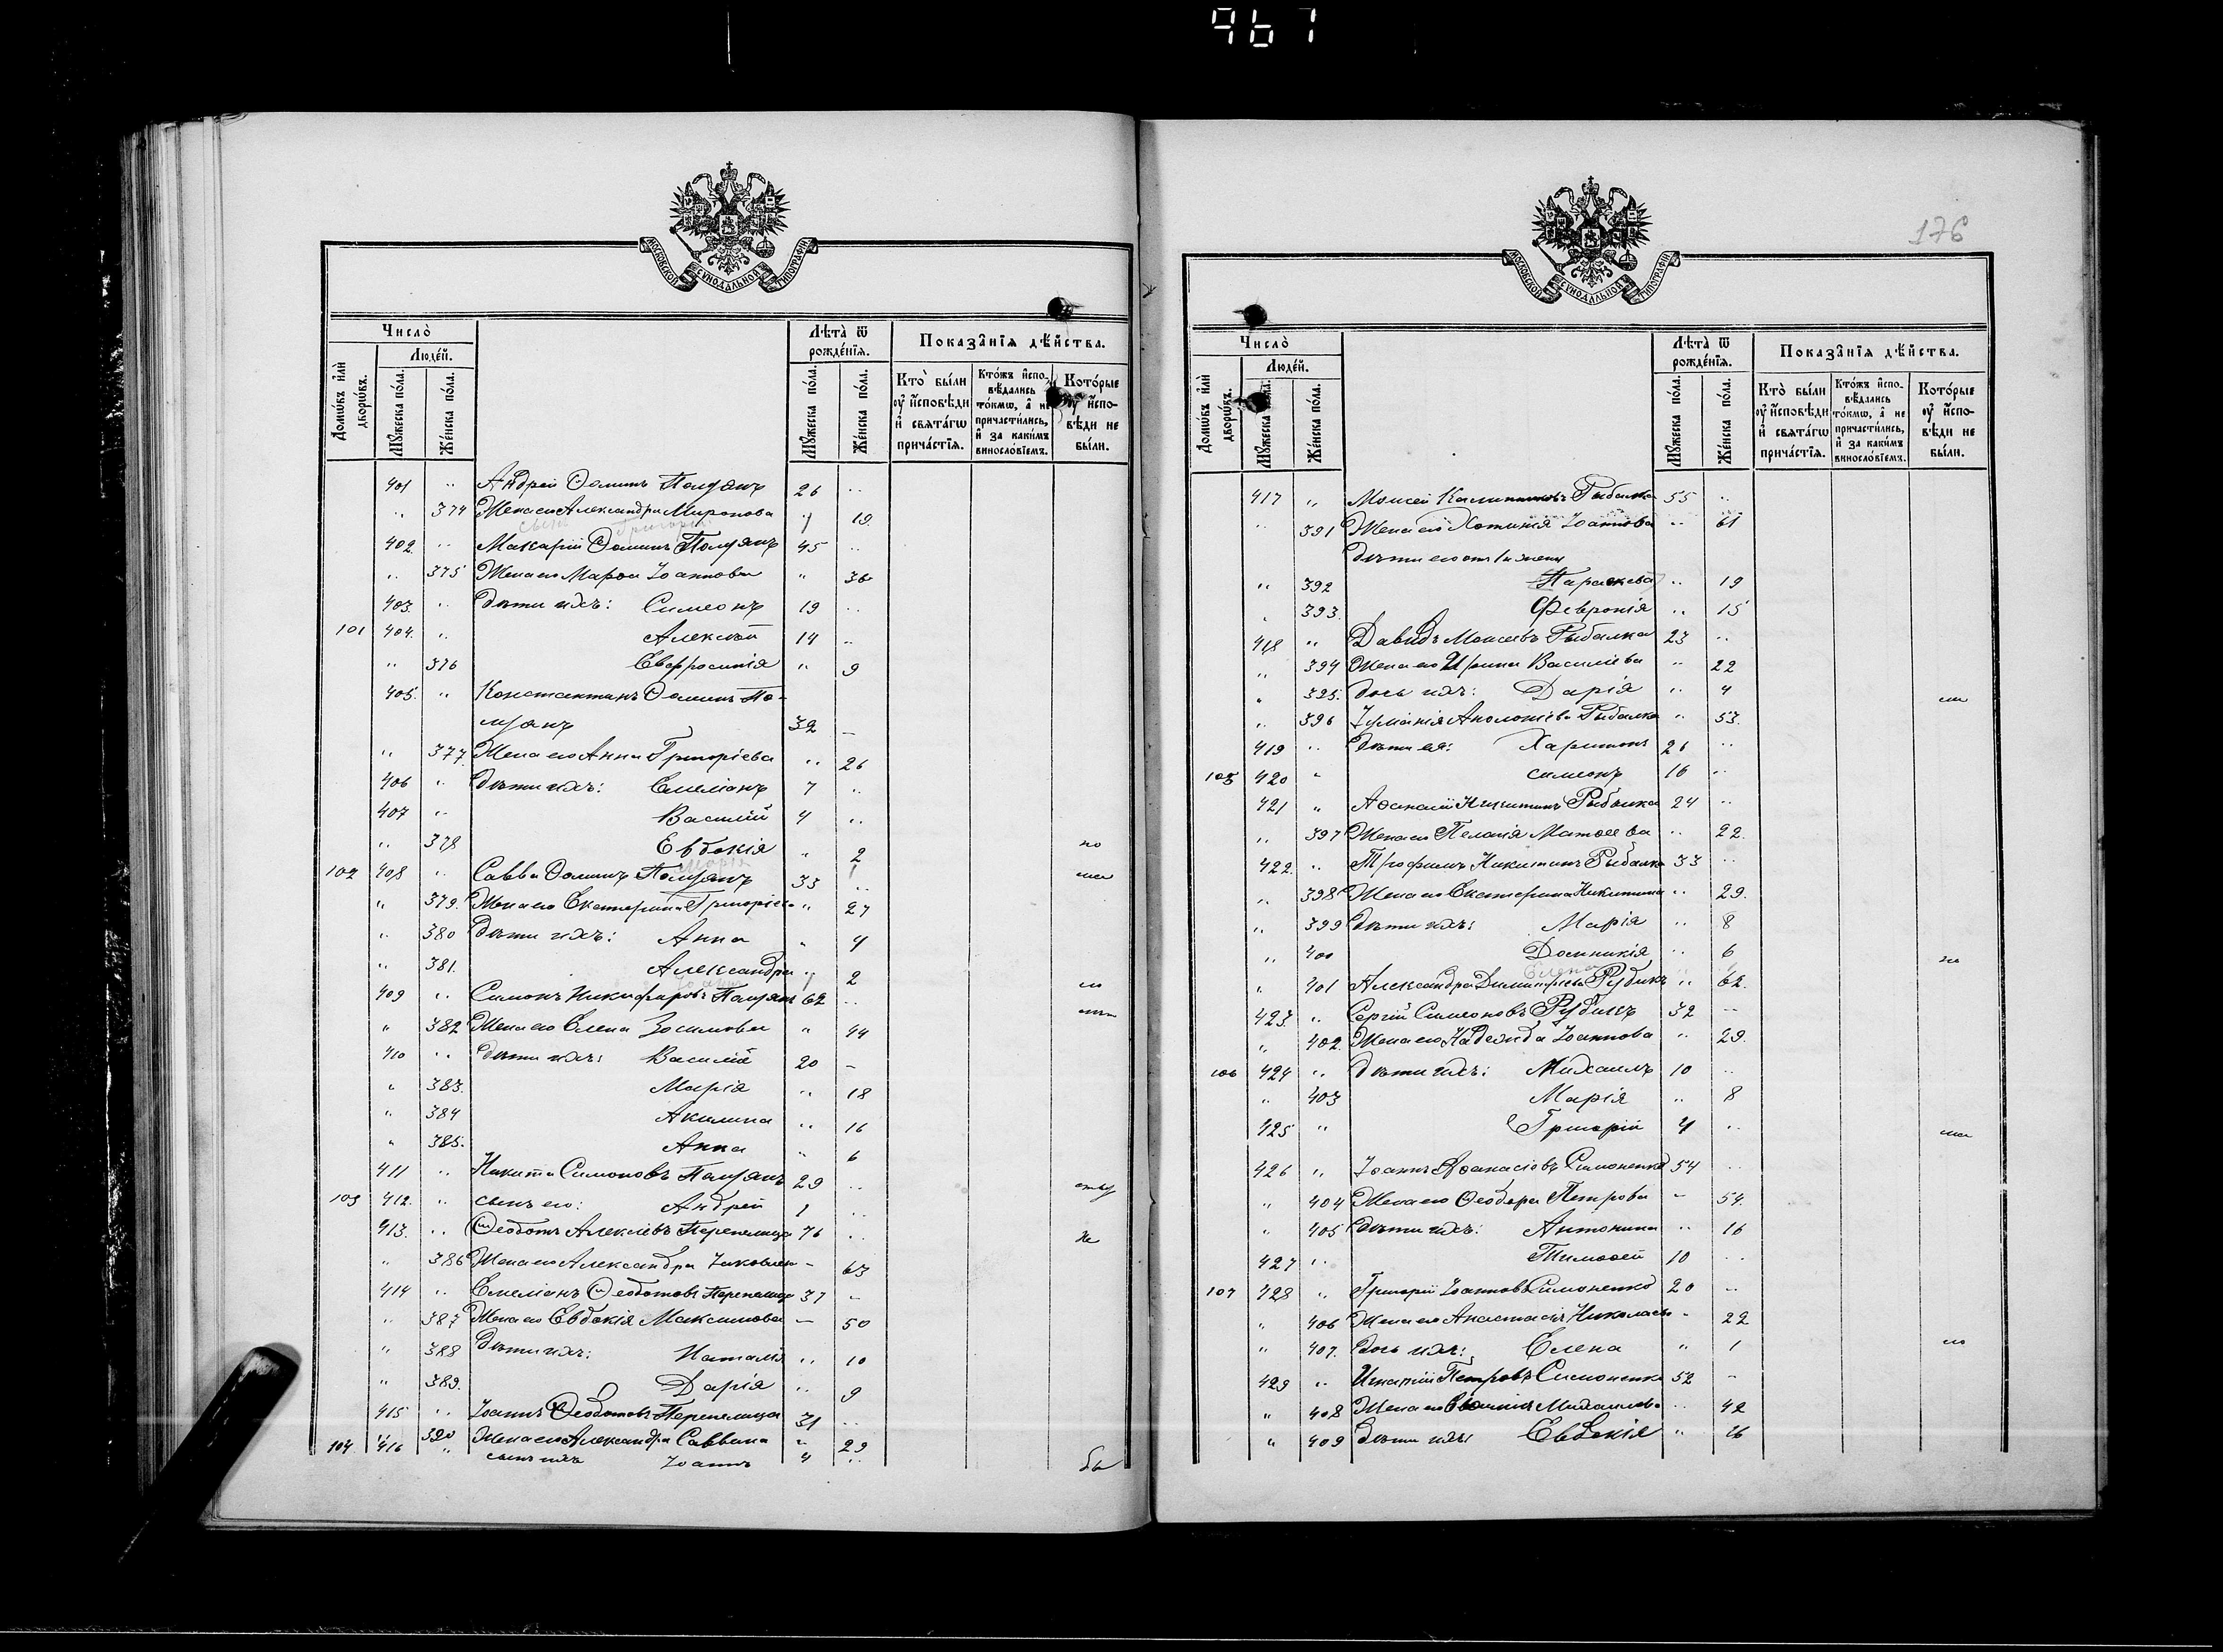 967
МОСКОВСКОЙ СѴНОДАЛЬНОЙ ТИПОГРАФІИ
Число̀
Людéй.
Домѡ́въ и҆лѝ дворѡ́въ.
Мꙋ́жеска по́ла.
Же́нска по́ла.
Лѣта̀ ѿ рожде́нїѧ.
Мꙋ́жеска по́ла.
Же́нска по́ла.
Показа̑нїѧ дѣ́йства.
Кто̀ бы́ли ᲂу҆ и҆сповѣ́ди и҆ свѧта́гѡ прича́стїѧ.
Кто́жъ и҆сповѣ́дались то́кмѡ, а҆ не причасти́лись, и҆ за каки́мъ винослóвїемъ.
Кото́рые ᲂу҆ и҆сповѣ́ди не бы́ли.
401 „ Андрей Ѳоминъ 26 „
„ 374 Жена его Александра Миронова „ 19
сынъ Григорій
402 „ Макарій Ѳоминъ 45 „
„ 375 Жена его Марѳа Іоаннова „ 36
403 „ Дѣти ихъ: Симеонъ 19 „
101 404 „ Алексѣй 14 „
„ 376 Евфросинія „ 9
405 „ Константинъ Ѳоминъ
32 –
„ 377 Жена его Анна Григоріева „ 26
406 „ Дѣти ихъ: Емеліанъ 7 „
407 „ Василій 4 „
„ 378 Евдокія „ 2
Марія
102 408 „ Савва Ѳоминъ 33 „
„ 379. Жена его Екатерина Григоріева „ 27
„ 380 Дѣти ихъ: Анна „ 4
„ 381. Александра „ 2
409 „ Симонъ Никифоровъ 62 „
„ 382 Жена его Елена Зосимова „ 44
410 „ Дѣти ихъ: Василій 20 –
„ 383. Марія „ 18
„ 384 Акилина „ 16
„ 385. Анна „ 6
411 „ Никита Симоновъ 29 „
103 412. „ сынъ его: Андрей 1 „
413. „ Ѳеодотъ Алексѣевъ Перепелица 76 „
„ 386 Жена его Александра „ 63
414 „ Емеліанъ Ѳеодотовъ Перепелица 37 –
„ 387 Жена его Евдокія Максимова – 50
„ 388 Дѣти ихъ: Наталія „ 10
„ 389. Дарія „ 9
415 „ Іоаннъ Ѳеодотовъ Перепелица 31 „
„ 390 Жена его Александра Саввина „ 29
104 416 „ сынъ ихъ Іоаннъ 4 „
176
МОСКОВСКОЙ СѴНОДАЛЬНОЙ ТИПОГРАФІИ
Число̀
Людéй.
Домѡ́въ и҆лѝ дворѡ́въ.
Мꙋ́жеска по́ла.
Же́нска по́ла.
Лѣта̀ ѿ рожде́нїѧ.
Мꙋ́жеска по́ла.
Же́нска по́ла.
Показа̑нїѧ дѣ́йства.
Кто̀ бы́ли ᲂу҆ и҆сповѣ́ди и҆ свѧта́гѡ прича́стїѧ.
Кто́жъ и҆сповѣ́дались то́кмѡ, а҆ не причасти́лись, и҆ за каки́мъ винослóвїемъ.
Кото́рые ᲂу҆ и҆сповѣ́ди не бы́ли.
417 „ Моисей Рыбалка 55 „
„ 391 Жена его Фотинія Іоаннова „ 61
Дѣти его отъ 1й жены
„ 392 Параскева „ 19
„ 393. Февронія „ 15
418 „ Давидъ Моисеевъ Рыбалка 23 „
„ 394 Жена его Ирина Василіева „ 22
„ 395. дочь ихъ: Дарія „ 4
„ 396 Рыбалка „ 53.
419 „ Дѣти ея: Харитонъ 26 „
105 420 „ Симеонъ 16 „
421 „ Аѳанасій Никитинъ Рыбалка 24 „
„ 397 Жена его Пелагія Матѳеева „ 22.
422. „ Трофимъ Никитинъ Рыбалка 33 „
„ 398 Жена его Екатерина Никитина „ 29.
„ 399 Дѣти ихъ: Марія „ 8
„ 400 Домникія „ 6
Елена
„ 401 Александра Димитріева Рубикъ „ 62.
423. „ Сергій Симеоновъ Рубикъ 32 –
„ 402. Жена его Надежда Іоаннова „ 29.
106 424 „ Дѣти ихъ: Михаилъ 10 „
„ 403 Марія „ 8
425 „ Григорій 4 „
426 „ Іоаннъ Аѳанасіевъ Симоненко 54 „
„ 404 Жена его Ѳеодора Петрова – 54.
„ 405 Дѣти ихъ: Антонина „ 16
427 „ Тимоѳей 10 „
107 428 „ Григорій Іоанновъ Симоненко 20 „
„ 406 Жена его Анастасія Николаева – 22
„ 407. Дочь ихъ: Елена „ 1
429 „ Игнатій Петровъ Симоненко 52 –
„ 408 Жена его Михаилова „ 42
„ 409 Дѣти ихъ: Евдокія „ 16